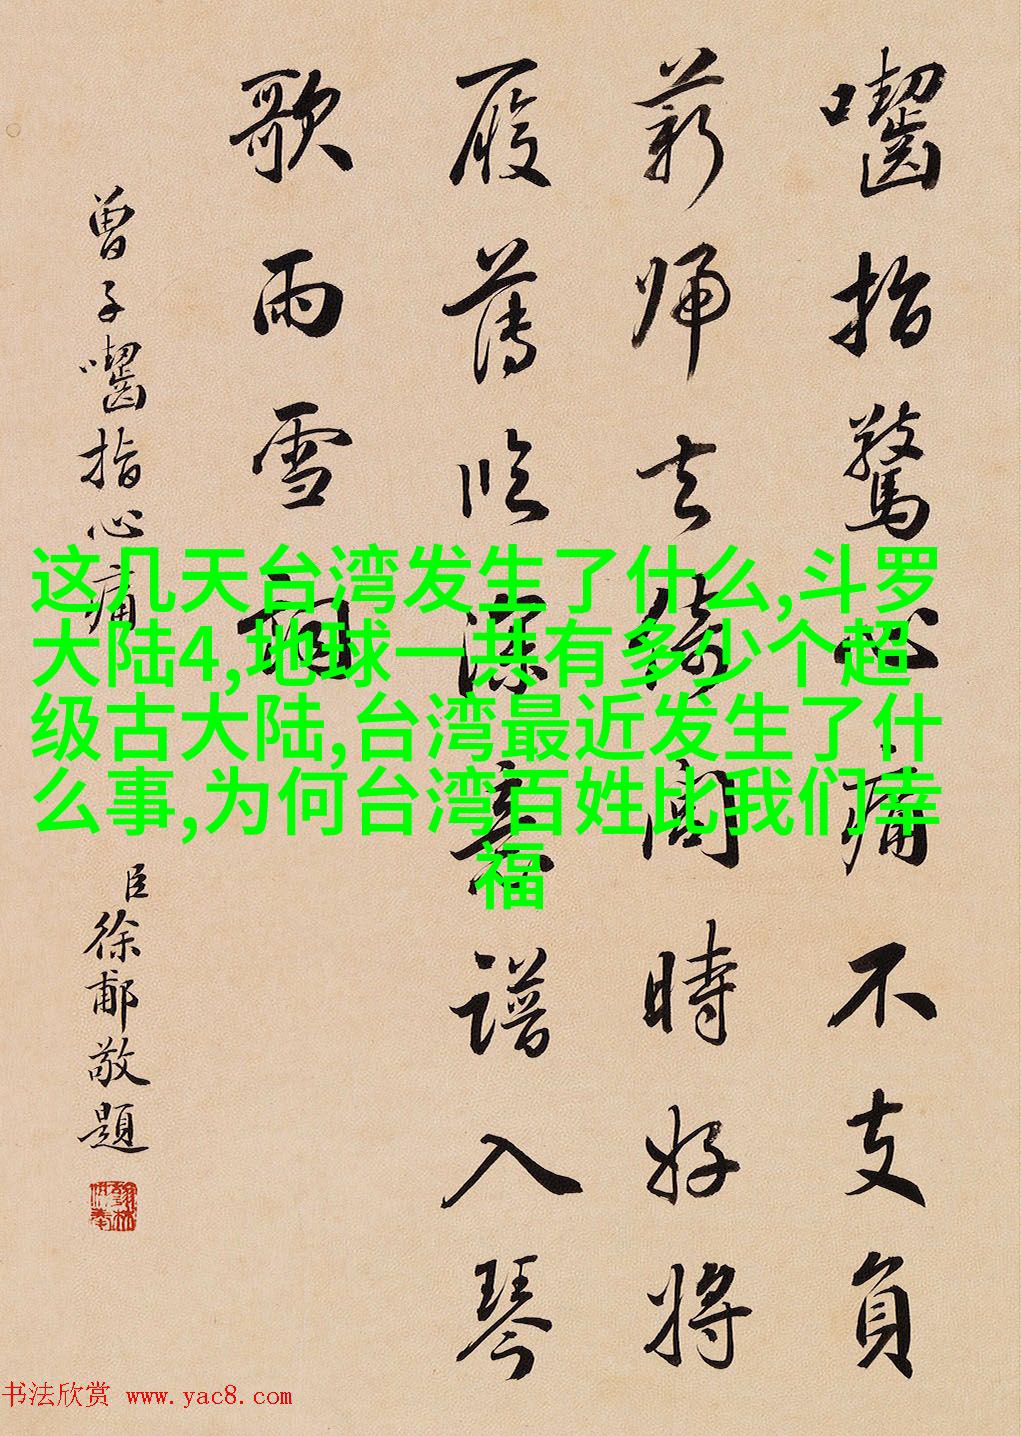 囓指驚心痛不支負
薪歸去倚閭時好將
履薄臨深意譜入琴
歌雨雪詞
曾子囓指心痛
臣徐郙敬題
这几天台湾发生了什么,斗罗
大陆4,地球一共有多少个超
级古大陆,台湾最近发生了什
么事,为何台湾百姓比我们幸
福
书法欣赏 www.yac8.com